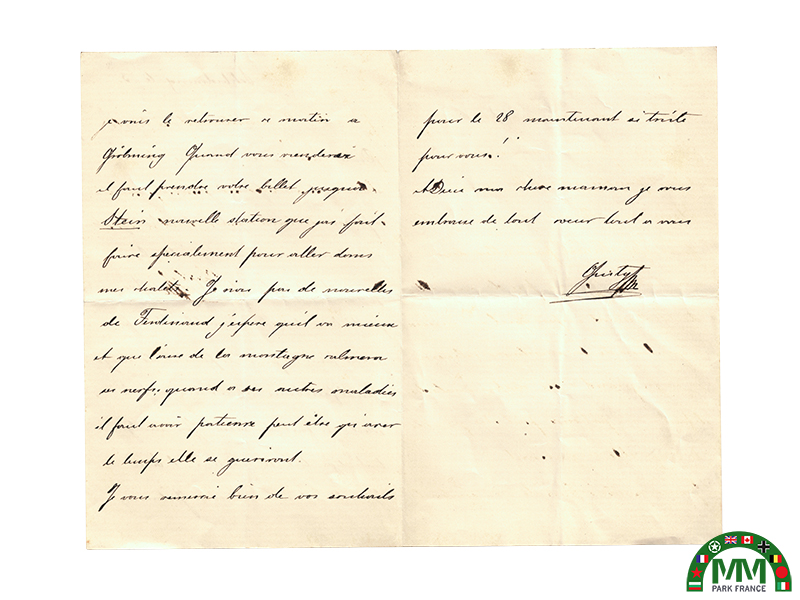 je vais le retrouver ce matin a
Gröbming Quand vous viendrez
il faut prendre votre billet jusqu'a
Stein nouvelle station que j'ai fait
faire specialement pour aller dans
mes chalets. Je n'ai pas de nouvelles
de Ferdinand j'espere qu'il va mieux
et que l'air de la montagne calmera
ses nerfs, quand a ses autres maladies
il faut avoir patience peut être qu'avec
le temps elle se gueriront.
Je vous remercie bien de vos souhaits
pour le 28 maintenant si triste
pour vous!
Adieu ma chere maman je vous
embrasse de tout coeur tout a vous
MM
PARK FRANCE